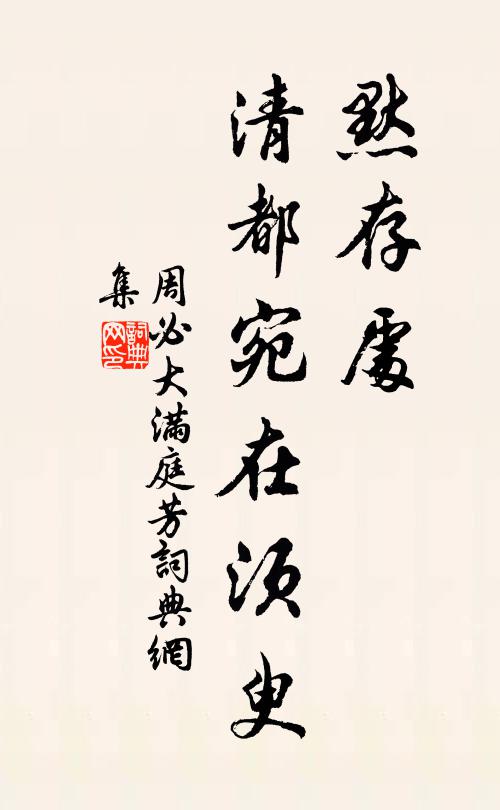 默存處
清都宛在須臾
周必大滿庭芳詞典網
集
詞典網印